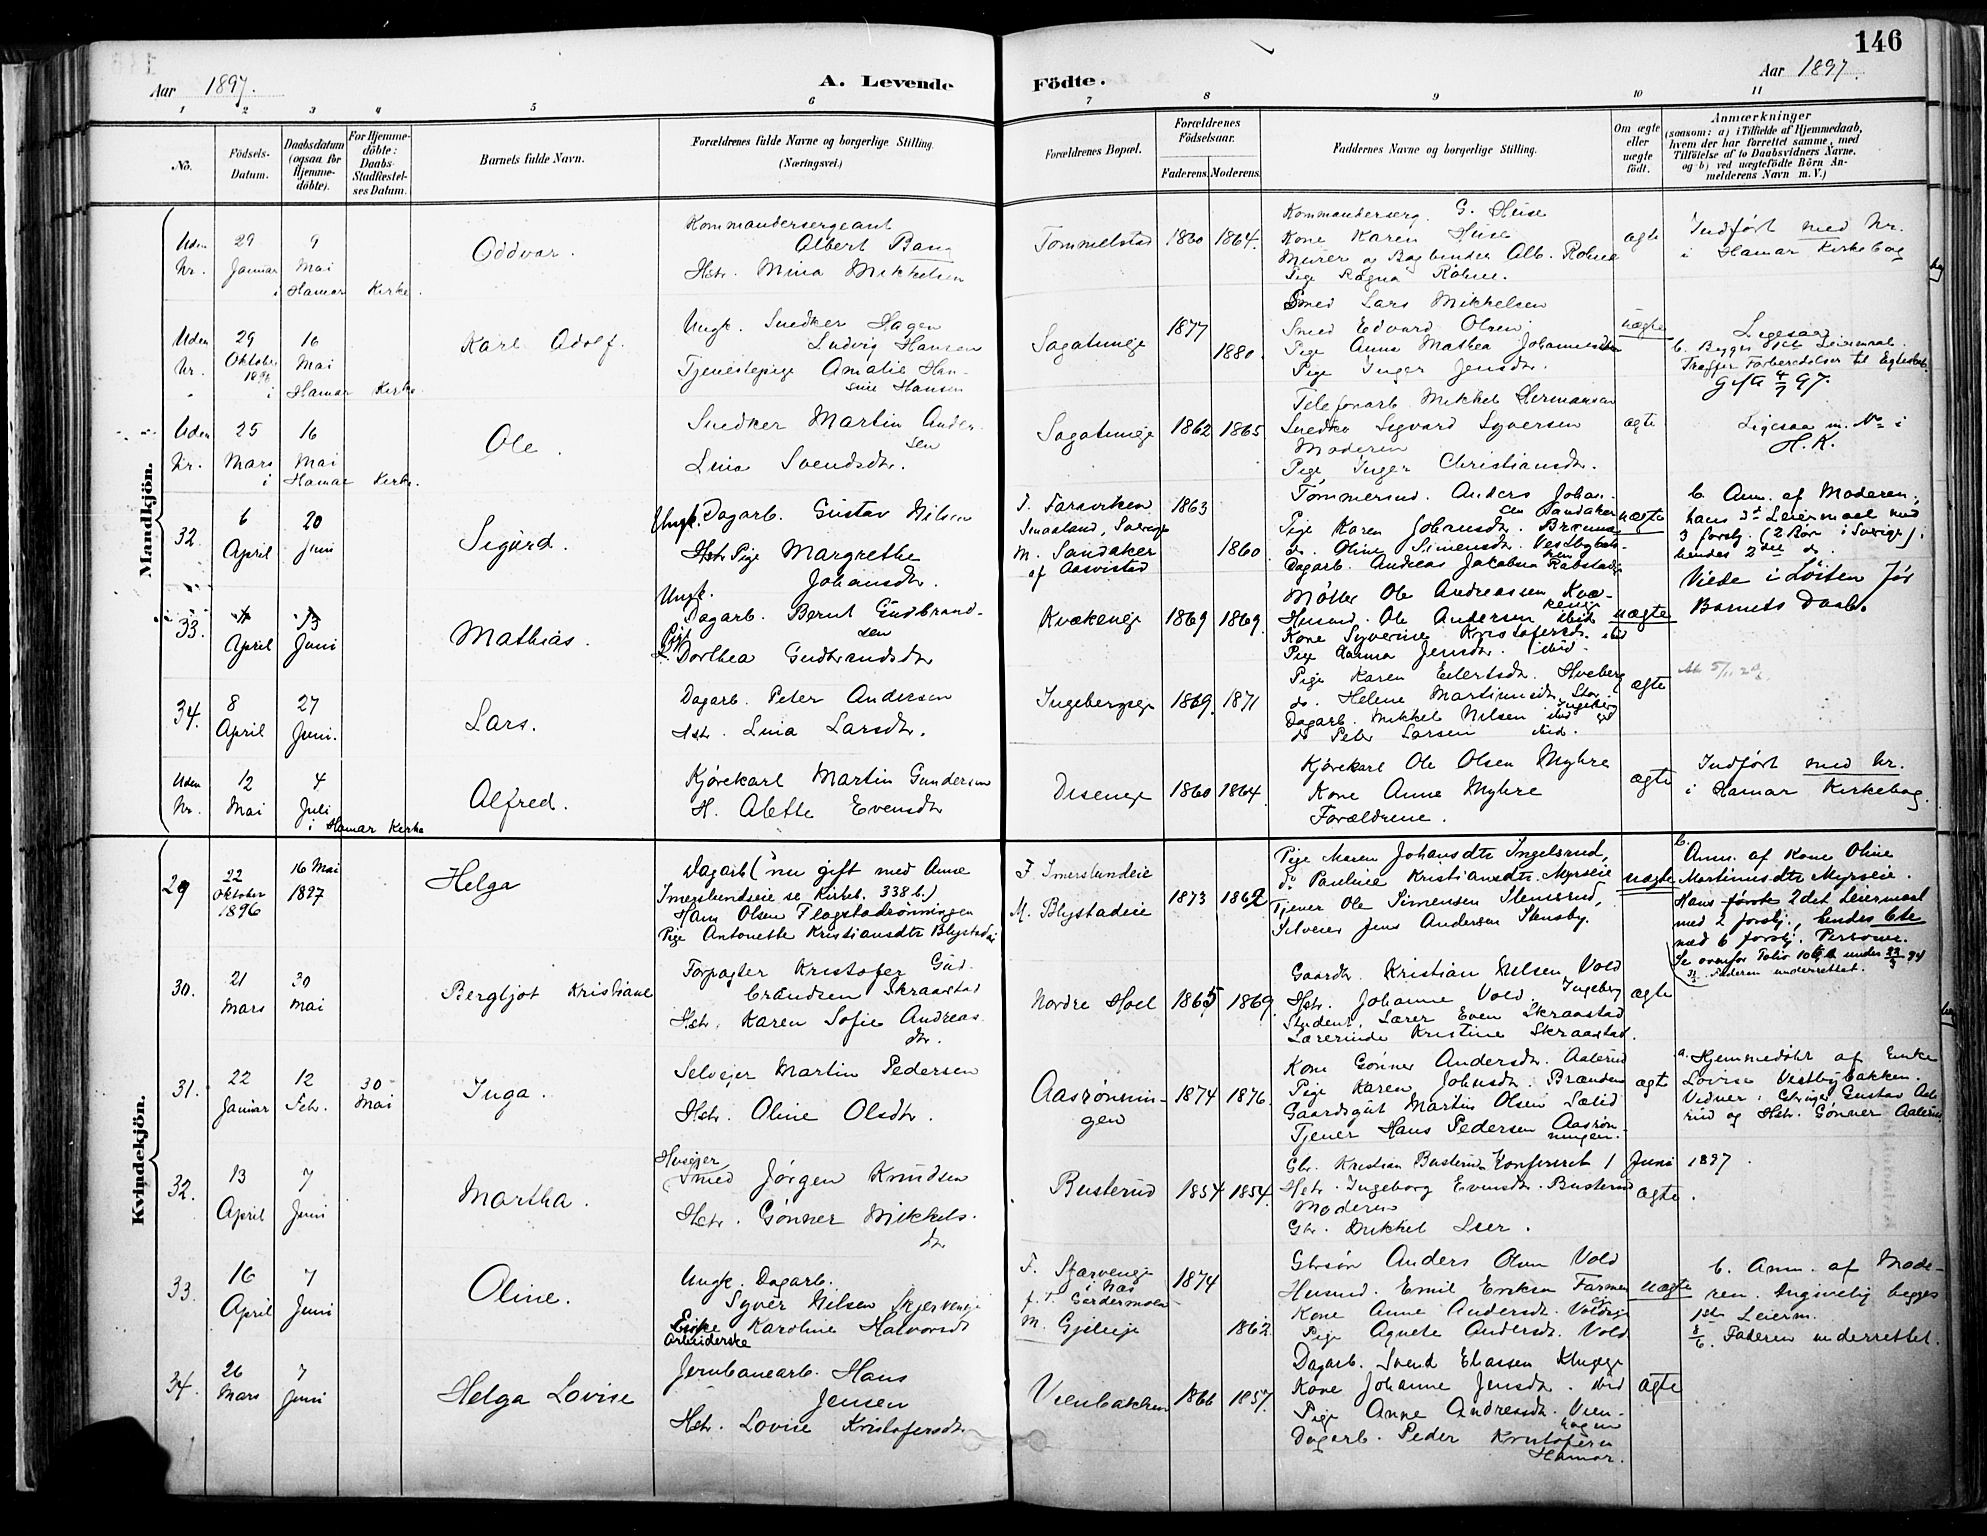 146
Aar 1897.
A. Levende Födte.
Aar 1897.
1 2 3 4 5 6 7 8 9 10 11
No.
Födsels-Datum.
Daabsdatum (ogsaa for Hjemme-döbte).
For Hjemme-döbte: Daabs-Stadfæstel-ses Datum.
Barnets fulde Navn.
Forældrenes fulde Navne og borgerlige Stilling. (Næringsvei.)
Forældrenes Bopæl.
Forældrenes Födselsaar.
Faderens. Moderens.
Faddernes Navne og borgerlige Stilling.
Om ægte eller uægte födt.
Anmærkninger
(saasom: a) i Tilfælde af Hjemmedaab, hvem der har forrettet samme, med Tilföielse af to Daabsvidners Navne, og b) ved uægtefödte Börn Anmelderens Navn m. V.)
Mandkjön.
Uden Nr.
29 Januar
9 Mai
i Hamar Kirke.
Oddvar.
Kommandersergeant
Albert Bang
Hstr. Mina Mikkelsen
Tommelstad
1860 1864.
Kommanderserg. G. Huse
Kone Karen Huse
Murer og Bogbinder Alb. Rohne
Pige Ragna Rohne.
ægte
Indført med Nr.
i Hamar Kirkebog
Uden Nr.
29 Oktober 1896
16 Mai
i Hamar Kirke
Karl Adolf.
Ungk. Snedker Hagen
Ludvig Hansen
Tjenestepige Amalie Han-
sine Hansen
Sagatuneje
1877
1880.
Smed Lars Mikkelsen
Smed Edvard Olsen.
Pige Anna Mathea Johannesdtr
Pige Inger Jensdtr.
uægte
Ligesaa
b. Begges 1ste Leiermaal.
Træffer Forberedelser til Egteskab.
Gifte 4/7 97.
Uden Nr.
25 Mars
16 Mai
i Hamar Kirke.
Ole.
Snedker Martin Ander-
sen
Lina Svendsdtr.
Sagatuneje
1862 1865
Telefonarb. Mikkel Hermansen
Snedker Sigvard Syversen
Moderen
Pige Inger Christiansdtr.
ægte
Ligesaa m. No i
H. K.
32.
6 April
20 Juni
Sigurd.
Ungk. Dagarb. Gustav Nilsen
Pige Margrethe
Johansdtr.
F. Farsviken
Smaaland, Sverige
M. Sandaker
af Aasvistad
1863
1860.
Tømmermd. Anders Johan-
sen Sandaker
Pige Karen Johansdtr.
do. Oline Simensdtr. Vestbybak-
ken
uægte
b. Anm. af Moderen,
hans 3d Leiermaal med
3 forskj. (2 Børn i Sverige),
hendes 2det do.
33.
April
13 Juni
Mathias.
Ungk.
Dagarb. Bernt Gudbrand-
sen
Pige Dorthea Gudbrandsdtr
Kvækeneje
1869 1869.
Møller Ole Andreassen Kvæ-
keneje
Husmd. Ole Andersen ibid
Kone Syverine Kristofersdtr. ibid
Pige Hanna Jensdtr. ibid.
uægte
Viede i Løiten før
Barnets Daab.
34.
8 April
27 Juni.
Lars.
Dagarb. Peter Andersen
Hstr. Lina Larsdtr.
Ingebergseje
1869. 1871
Pige Karen Eilertsdtr. Hveberg
do. Helene Martinusdtr. Stor-
Ingeberg
Dagarb. Mikkel Nilsen ibid
do Peter Larsen ibid.
ægte
Uden Nr.
12 Mai
4 Juli
i Hamar Kirke
Alfred.
Kjørekarl Martin Gundersen
H. Alette Evensdtr
Diseneje
1860 1864.
Kjørekarl Ole Olsen Myhre
Kone Anne Myhre
Forældrene.
ægte
Indført med Nr.
i Hamar Kirkebog.
Kvindekjön.
29
22 Oktober 1896
16 Mai 1897
Helga
Dagarb. (nu gift med Anne
Imerslundseie se Kirkeb. 338 b.)
Hans Olsen Flagstadrønningen
Pige Antonette Kristiansdtr Blystadeie
F. Imerslundeie
M. Blystadeie
1873 1862
Pige Maren Johansdtr Ingelsrud,
do Pauline Kristiansdtr Myrseie
Tjener Ole Simensen Stensrud,
Selveier Jens Andersen Stensby.
uægte
b.
Anm. af Kone Oline
Martinusdtr Myrseie.
Hans første 2det Leiermaal
med 2 forskj., hendes 6te
med 6 forskj. Personer.
Faderen underrettet.
30.
21 Mars
30 Mai
Bergljot Kristiane
Forpagter Kristofer Gud-
brandsen Skraastad
Hstr. Karen Sofie Andreas-
dtr.
Nordre Hoel
1865 1869.
Gaardbr. Kristian Nilsen Vold
Hstr. Johanne Vold, Ingeberg
Student, Lærer Even Skraastad
Lærerinde Kristine Skraastad.
ægte
31.
22 Januar
12 Febr.
30 Mai
Inga.
Selvejer Martin Pedersen
Hstr. Oline Olsdtr.
Aasrønnin-
gen
1874 1876.
Kone Gønner Andersdtr. Aalerud
Pige Karen Johnsdtr. Brænden
Gaardsgut Martin Olsen Sælid
Tjener Hans Pedersen Aasrøn-
ningen.
ægte
a. Hjemmedøbt af Enke
Lovise Vestbybakken.
Vidner: Gustav Aale-
rud og Hstr. Gønner Aalerud.
32.
13 April
7 Juni
Martha.
Husejer
Smed Jørgen Knudsen
Hstr. Gønner Mikkels-
dtr
Busterud
1854 1854.
Gbr. Kristian Busterud Konfereret 1 Juni 1897.
Hstr. Ingeborg Evensdtr. Busterud
Moderen
Gbr. Mikkel Lier.
ægte.
33.
16 April
7 Juni
Oline.
Ungk. Dagarb.
Syver Nilsen Skjerveneje
Enke Karoline Halvorsdtr
Arbeiderske
F. Skjerveneje
i Næs
f. T. Gardermoen
M. Gjilleje
1874
1862.
Gbrsøn Anders Olsen Vold
Husmd. Emil Eriksen Farmen
Kone Anne Andersdtr. Voldseje
Pige Agnete Andersdtr. Vold
uægte
b. Anm. af Mode-
ren. Angivelig begges
1ste Leierm.
Faderen underrettet.
34.
26 Mars
7 Juni
Helga Lovise
Jernbanearb. Hans
Jensen
Hstr. Lovise Kristofersdtr
Vienbakken
1866 1857.
Dagarb. Svend Eliassen
Kone Johanne Jensdtr. ibid
Pige Anne Andreasdtr. Vien-
hagen
Dagarb. Peder Kristofersen
Hamar.
ægte